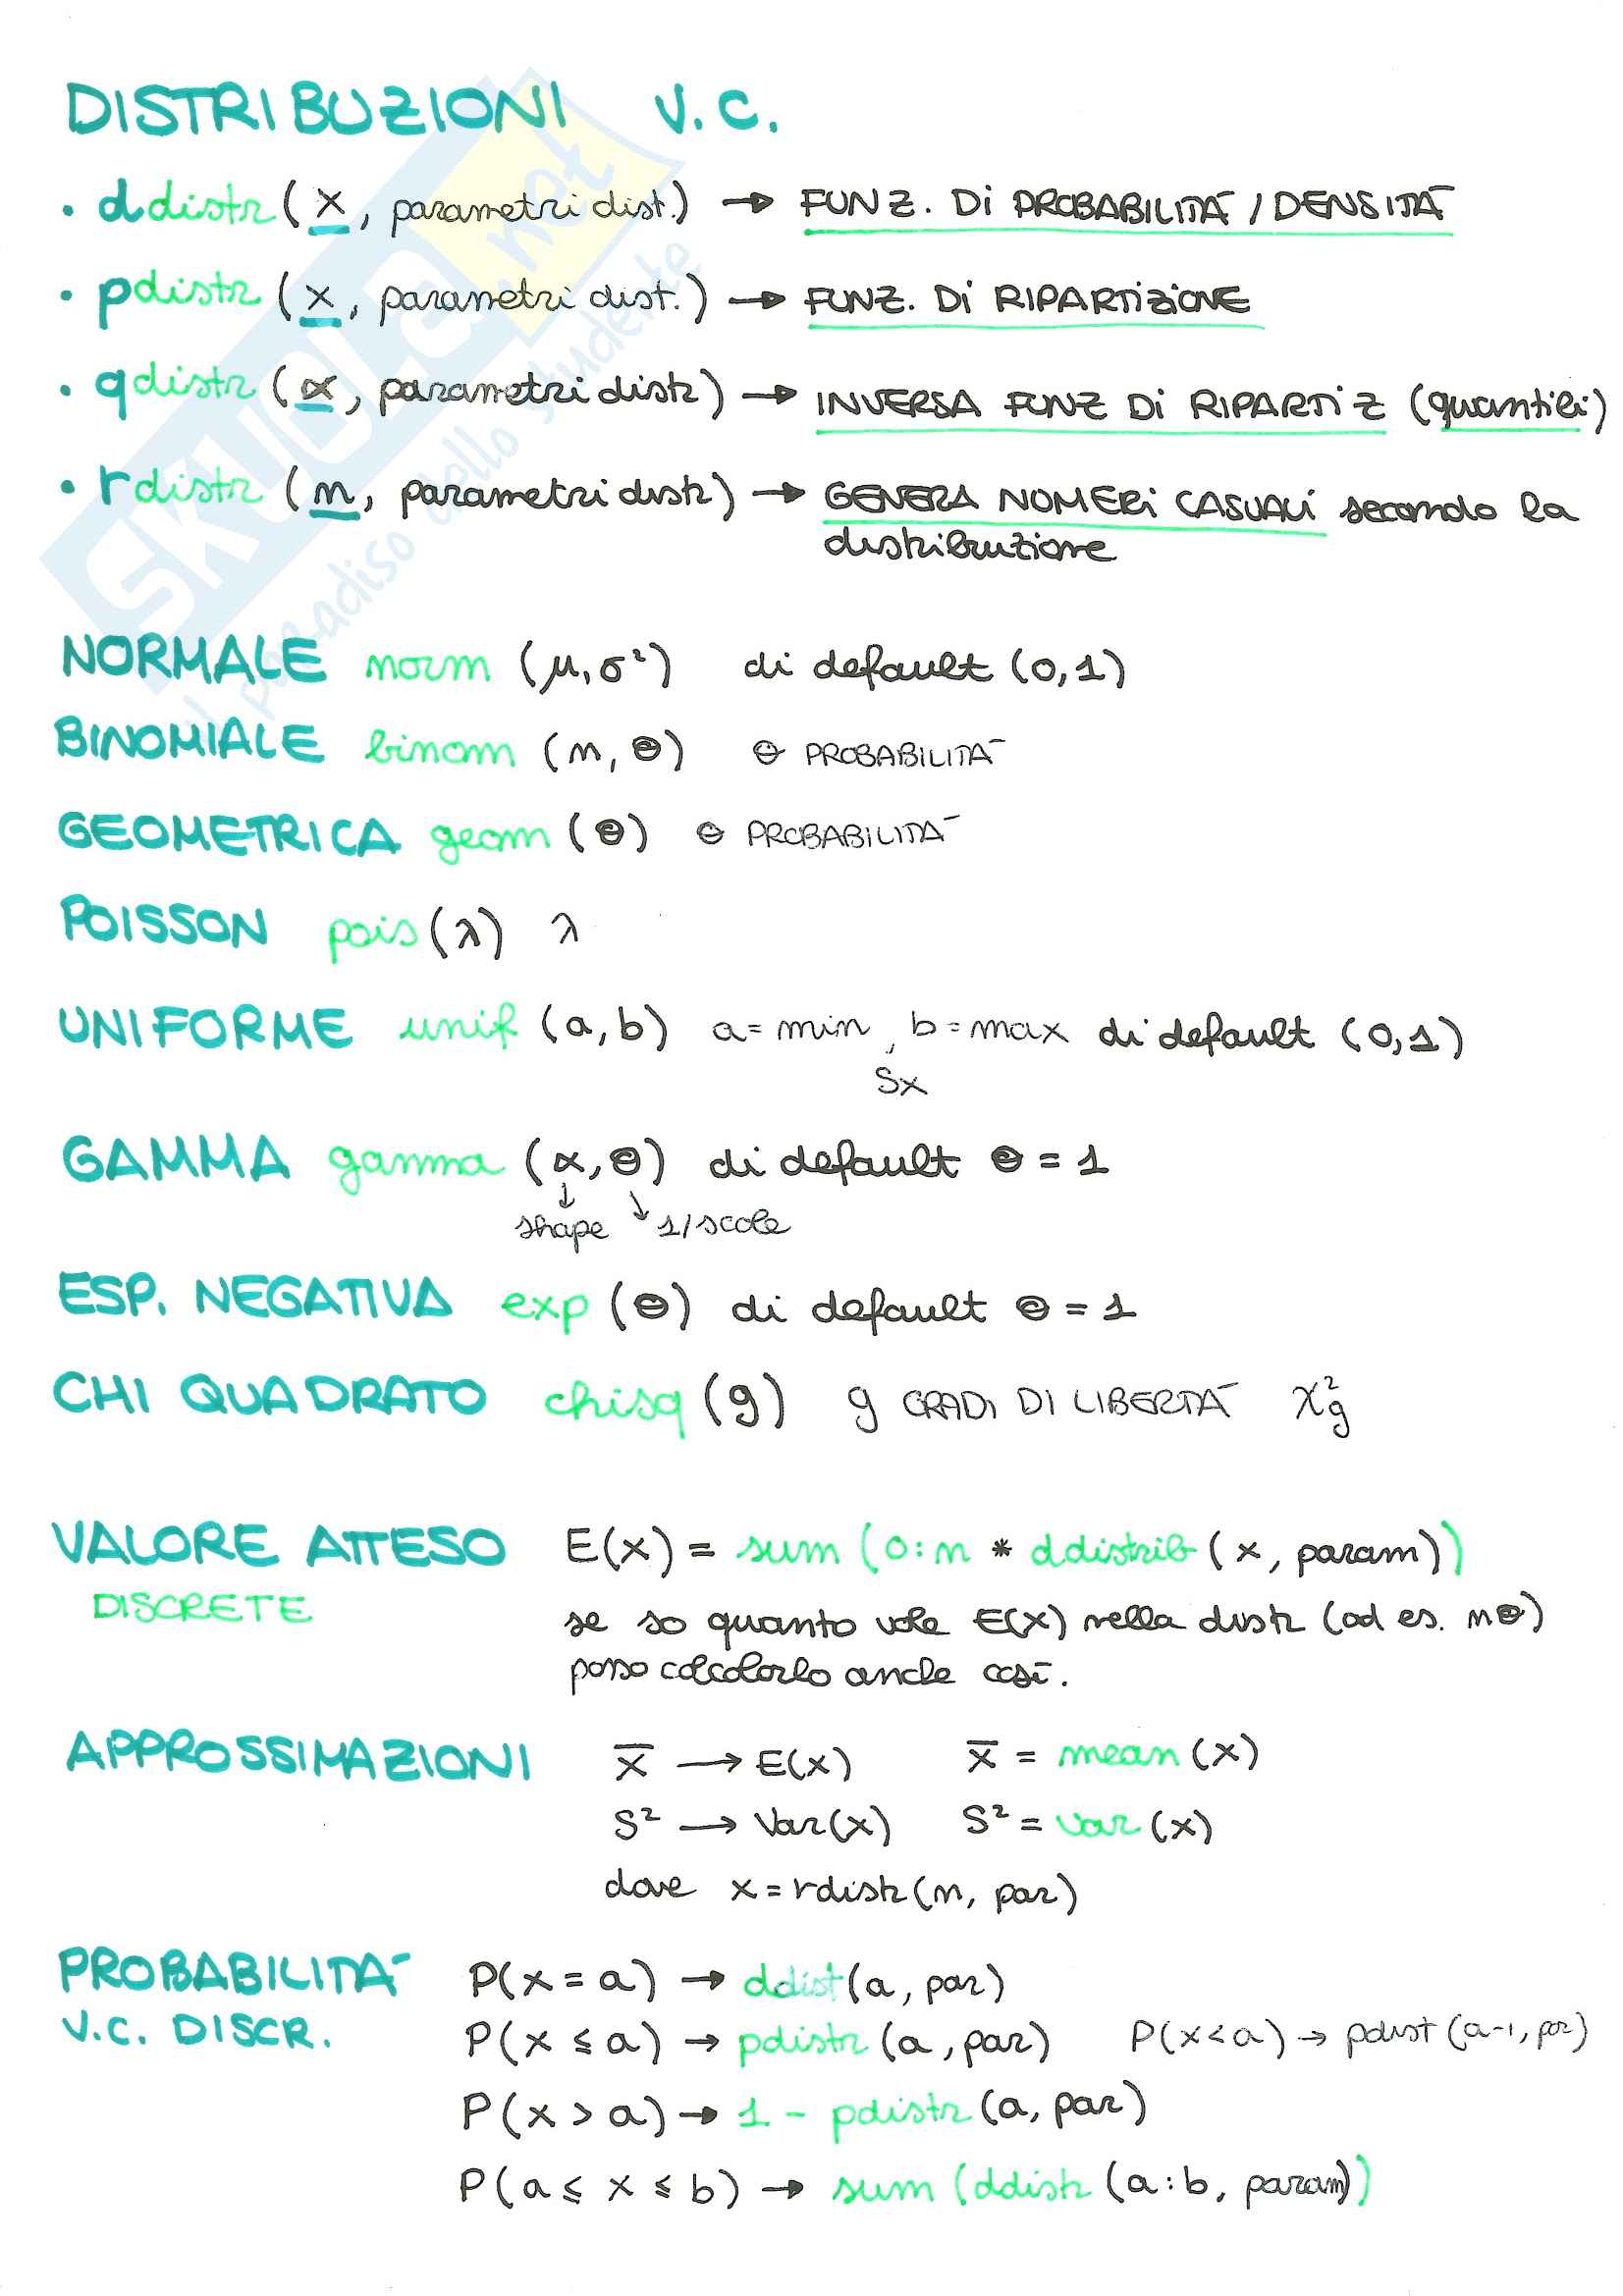 DISTRIBUZIONI V.C.
• ddistr (x, parametri dist.) → FUNZ. Di PROBABILITÀ / DENSITÀ
• pdistr (x, parametri dist.) → FUNZ. Di RIPARTiZiONE
• qdistr (α, parametri distr) → INVERSA FUNZ Di RIPARTiZ (quantili)
• rdistr (n, parametri distr) → GENERA NUMERi CASUALi secondo la
distribuzione
SKUOLA.net
il paradiso dello studente
NORMALE norm (μ, σ²) di default (0,1)
BINOMIALE binom (n, θ) θ PROBABILITÀ
GEOMETRICA geom (θ) θ PROBABILITÀ
POISSON pois (λ) λ
UNIFORME unif (a, b) a = min, b = max di default (0,1)
Sx
GAMMA gamma (α, θ) di default θ = 1
↓ shape ↘ 1/scale
ESP. NEGATIVA exp (θ) di default θ = 1
CHI QUADRATO chisq (g) g GRADI DI LIBERTÀ χ²g
VALORE ATTESO E(x) = sum (0:n * ddistrib (x, param))
DISCRETE
se so quanto vale E(X) nella distr (ad es. nθ)
posso calcolarlo anche così.
APPROSSIMAZIONI x̅ → E(x) x̅ = mean (x)
S² → Var(x) S² = var (x)
dove x = rdistr (n, par)
PROBABILITÀ P(x = a) → ddist (a, par)
V.C. DISCR. P(x ≤ a) → pdistr (a, par) P(x < a) → pdist (a-1, par)
P(x > a) → 1 - pdistr (a, par)
P(a ≤ x ≤ b) → sum (ddistr (a:b, param))